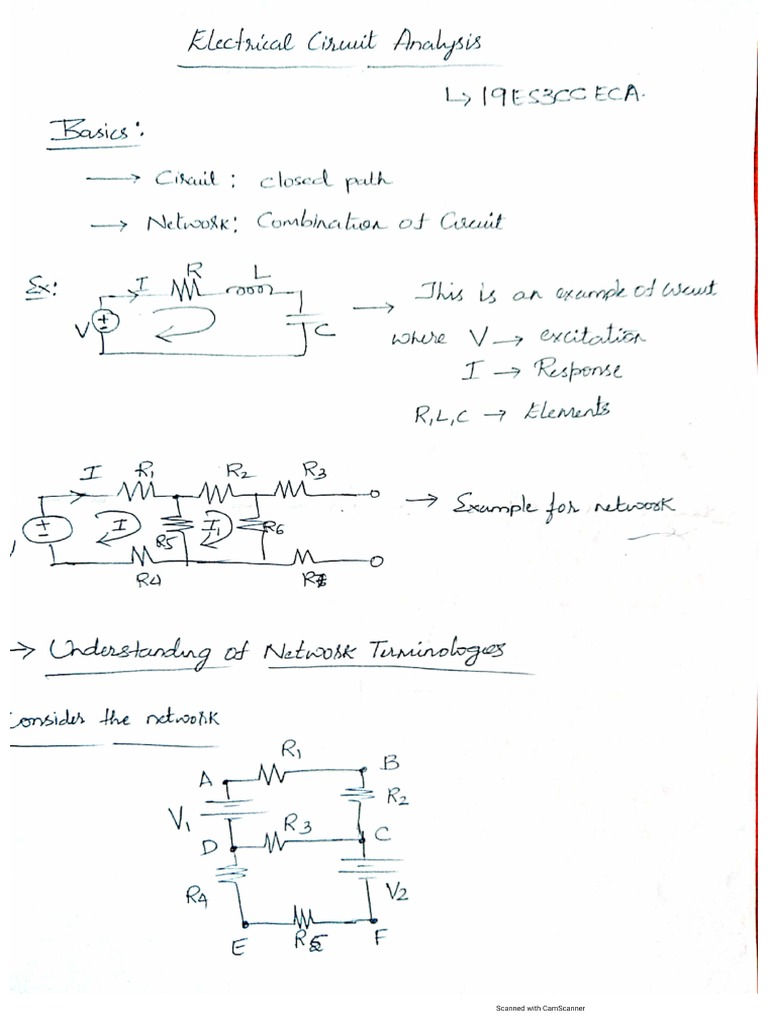 Electrical Circuit Analysis
↳ 19ES3CCECA.
Basics:
→ Circuit: closed path
→ Network: Combination of Circuit
Ex:
I R L
V C
→ This is an example of Circuit
where V → excitation
I → Response
R,L,C → Elements
I R1 R2 R3
I R5 I1 R6
R4
→ Example for network
→ Understanding of Network Terminologies
Consider the network
R1
A B
R2
V1
R3
D C
R4 V2
E R5 F
Scanned with CamScanner